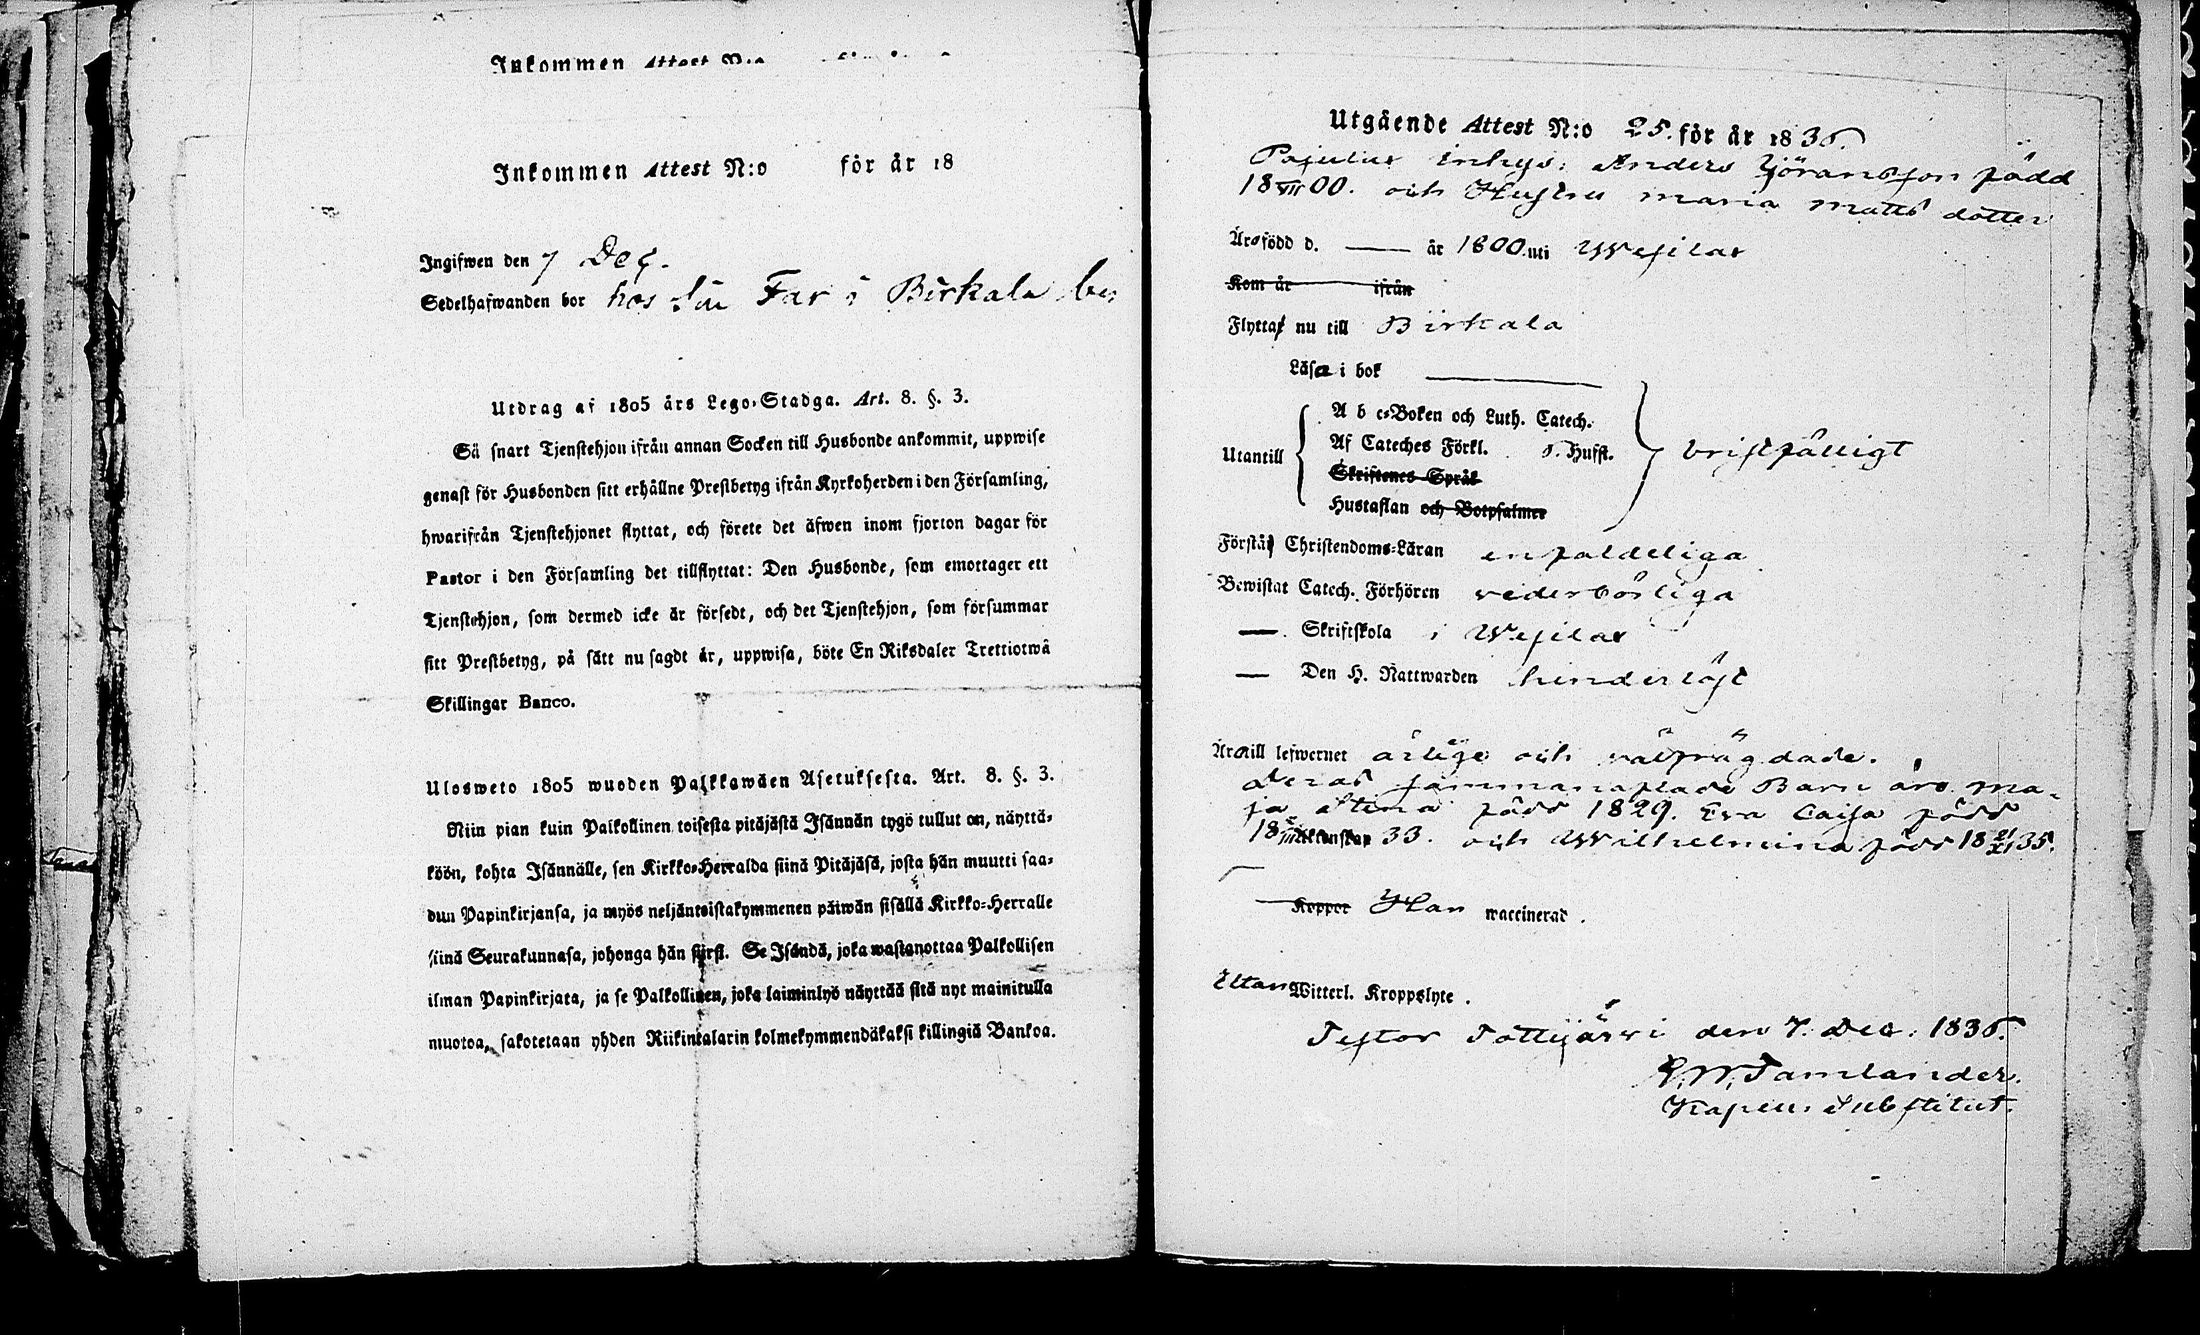 Inkommen Attest N:o
Inkommen Attest N:o för år 18
Ingifwen den 7 Dec.
Sedelhafwanden bor hos sin Far i Birkala
Utdrag af 1805 års Lego-Stadga. Art. 8. §. 3.
Så snart Tjenstehjon ifrån annan Socken till Husbonde ankommit, uppwise
genast för Husbonden sitt erhållne Prestbetyg ifrån Kyrkoherden i den Församling,
hwarifrån Tjenstehjonet flyttat, och förete det äfwen inom fjorton dagar för
Pastor i den Församling det tillflyttat: Den Husbonde, som emottager ett
Tjenstehjon, som dermed icke är försedt, och det Tjenstehjon, som försummar
sitt Prestbetyg, på sätt nu sagdt är, uppwisa, böte En Riksdaler Trettiotwå
Skillingar Banco.
Ulosweto 1805 wuoden Palkkawäen Asetuksesta. Art. 8. §. 3.
Niin pian kuin Palkollinen toisesta pitäjästä Isännän tygö tullut on, näyttä-
köön, kohta Isännälle, sen Kirkko-Herralda siinä Pitäjäsä, josta hän muutti saa-
dun Papinkirjansa, ja myös neljäntoistakymmenen päiwän sisällä Kirkko-Herralle
siinä Seurakunnasa, johonga hän siirsi. Se Isändä, joka wastanottaa Palkollisen
ilman Papinkirjata, ja se Palkollinen, joka laiminlyö näyttää sitä nyt mainitulla
muotoa, sakotetaan yhden Riikintalarin kolmekymmendäkaksi killingiä Bankoa.
Utgående Attest N:o 25. för år 1836.
Pajulux inhys: Anders Göransson född
18 VII 00. och Hustru Maria Matts dotter
Äro född d. — år 1800. uti Wesilax
Kom år ifrån
Flytta nu till Birkala
Läsa i bok
Utantill
A b c-Boken och Luth. Catech.
Af Cateches Förkl. 5. Hufst.
Skriftenes Språk
Hustaflan och Botpsalmer
bristfälligt
Förstå Christendoms-Läran enfaldeliga
Bewistat Catech. Förhören vederbörliga
— Skriftskola i Wesilax
— Den H. Nattwarden hinderlöst
Äro till lefwernet ärlige och välfrägdade.
Deras sammanaflade Barn äro Ma-
ja Stina född 1829. Eva Caisa född
18 33. och Wilhelmina född 18 35.
Koppor Han waccinerad.
Utan Witterl. Kroppslyte.
Testar Tottijärwi den 7. Dec. 1836.
Tamlander.
Kapell. Substitut.